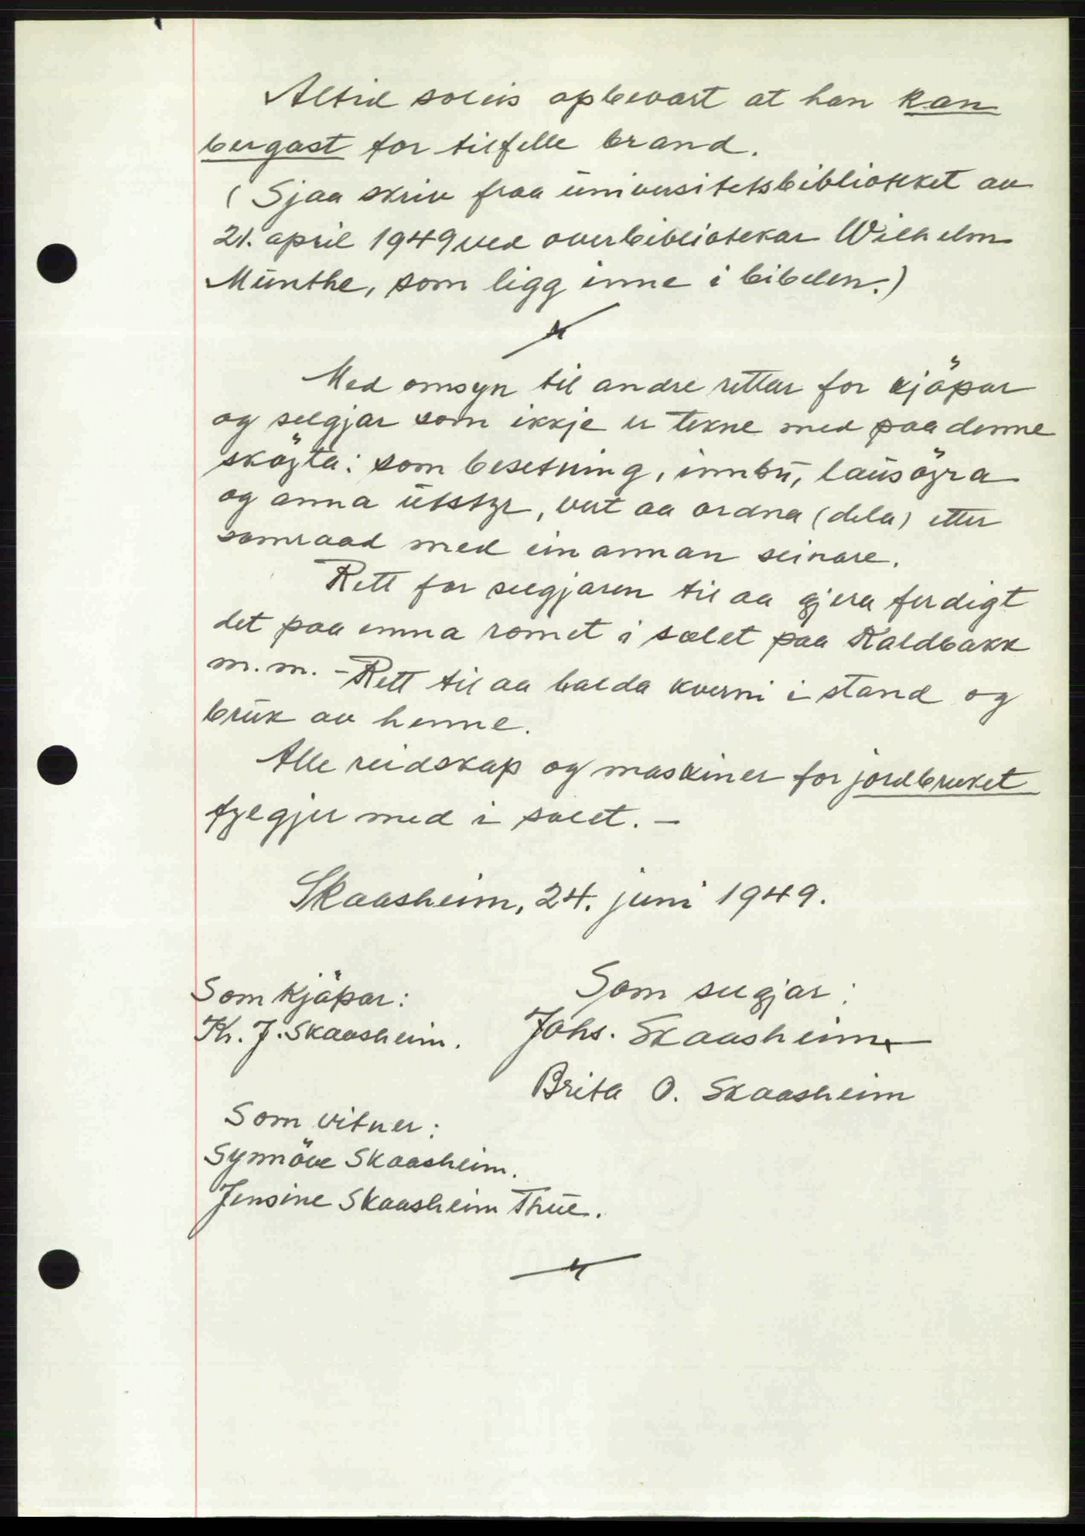 Altid soleis opbevart at han kan
bergast for tilfelle brand.
(Sjaa skriv fraa universitetsbiblioteket av
21. april 1949 ved overbibliotekar Wilhelm
Munthe, som ligg inne i bibelen.)
Med omsyn til andre rettar for kjöpar
og selgjar som ikkje er tekne med paa denne
sköyta: som besetning, innbu, lausöyra
og anna utstyr, vert aa ordna (dela) etter
samraad med ein annan seinare.
Rett for selgjaren til aa gjera ferdigt
det paa emna romet i selet paa Kaldbakk
m.m. - Rett til aa halda kverni i stand og
bruk av henne.
Alle reidskap og maskiner for jordbruket
fylgjer med i salet. -
Skaasheim, 24. juni 1949.
Som kjöpar:
Kr. J. Skaasheim.
Som selgjar:
Johs. Skaasheim
Brita O. Skaasheim
Som vitner:
Synnöve Skaasheim.
Jensine Skaasheim Thue.